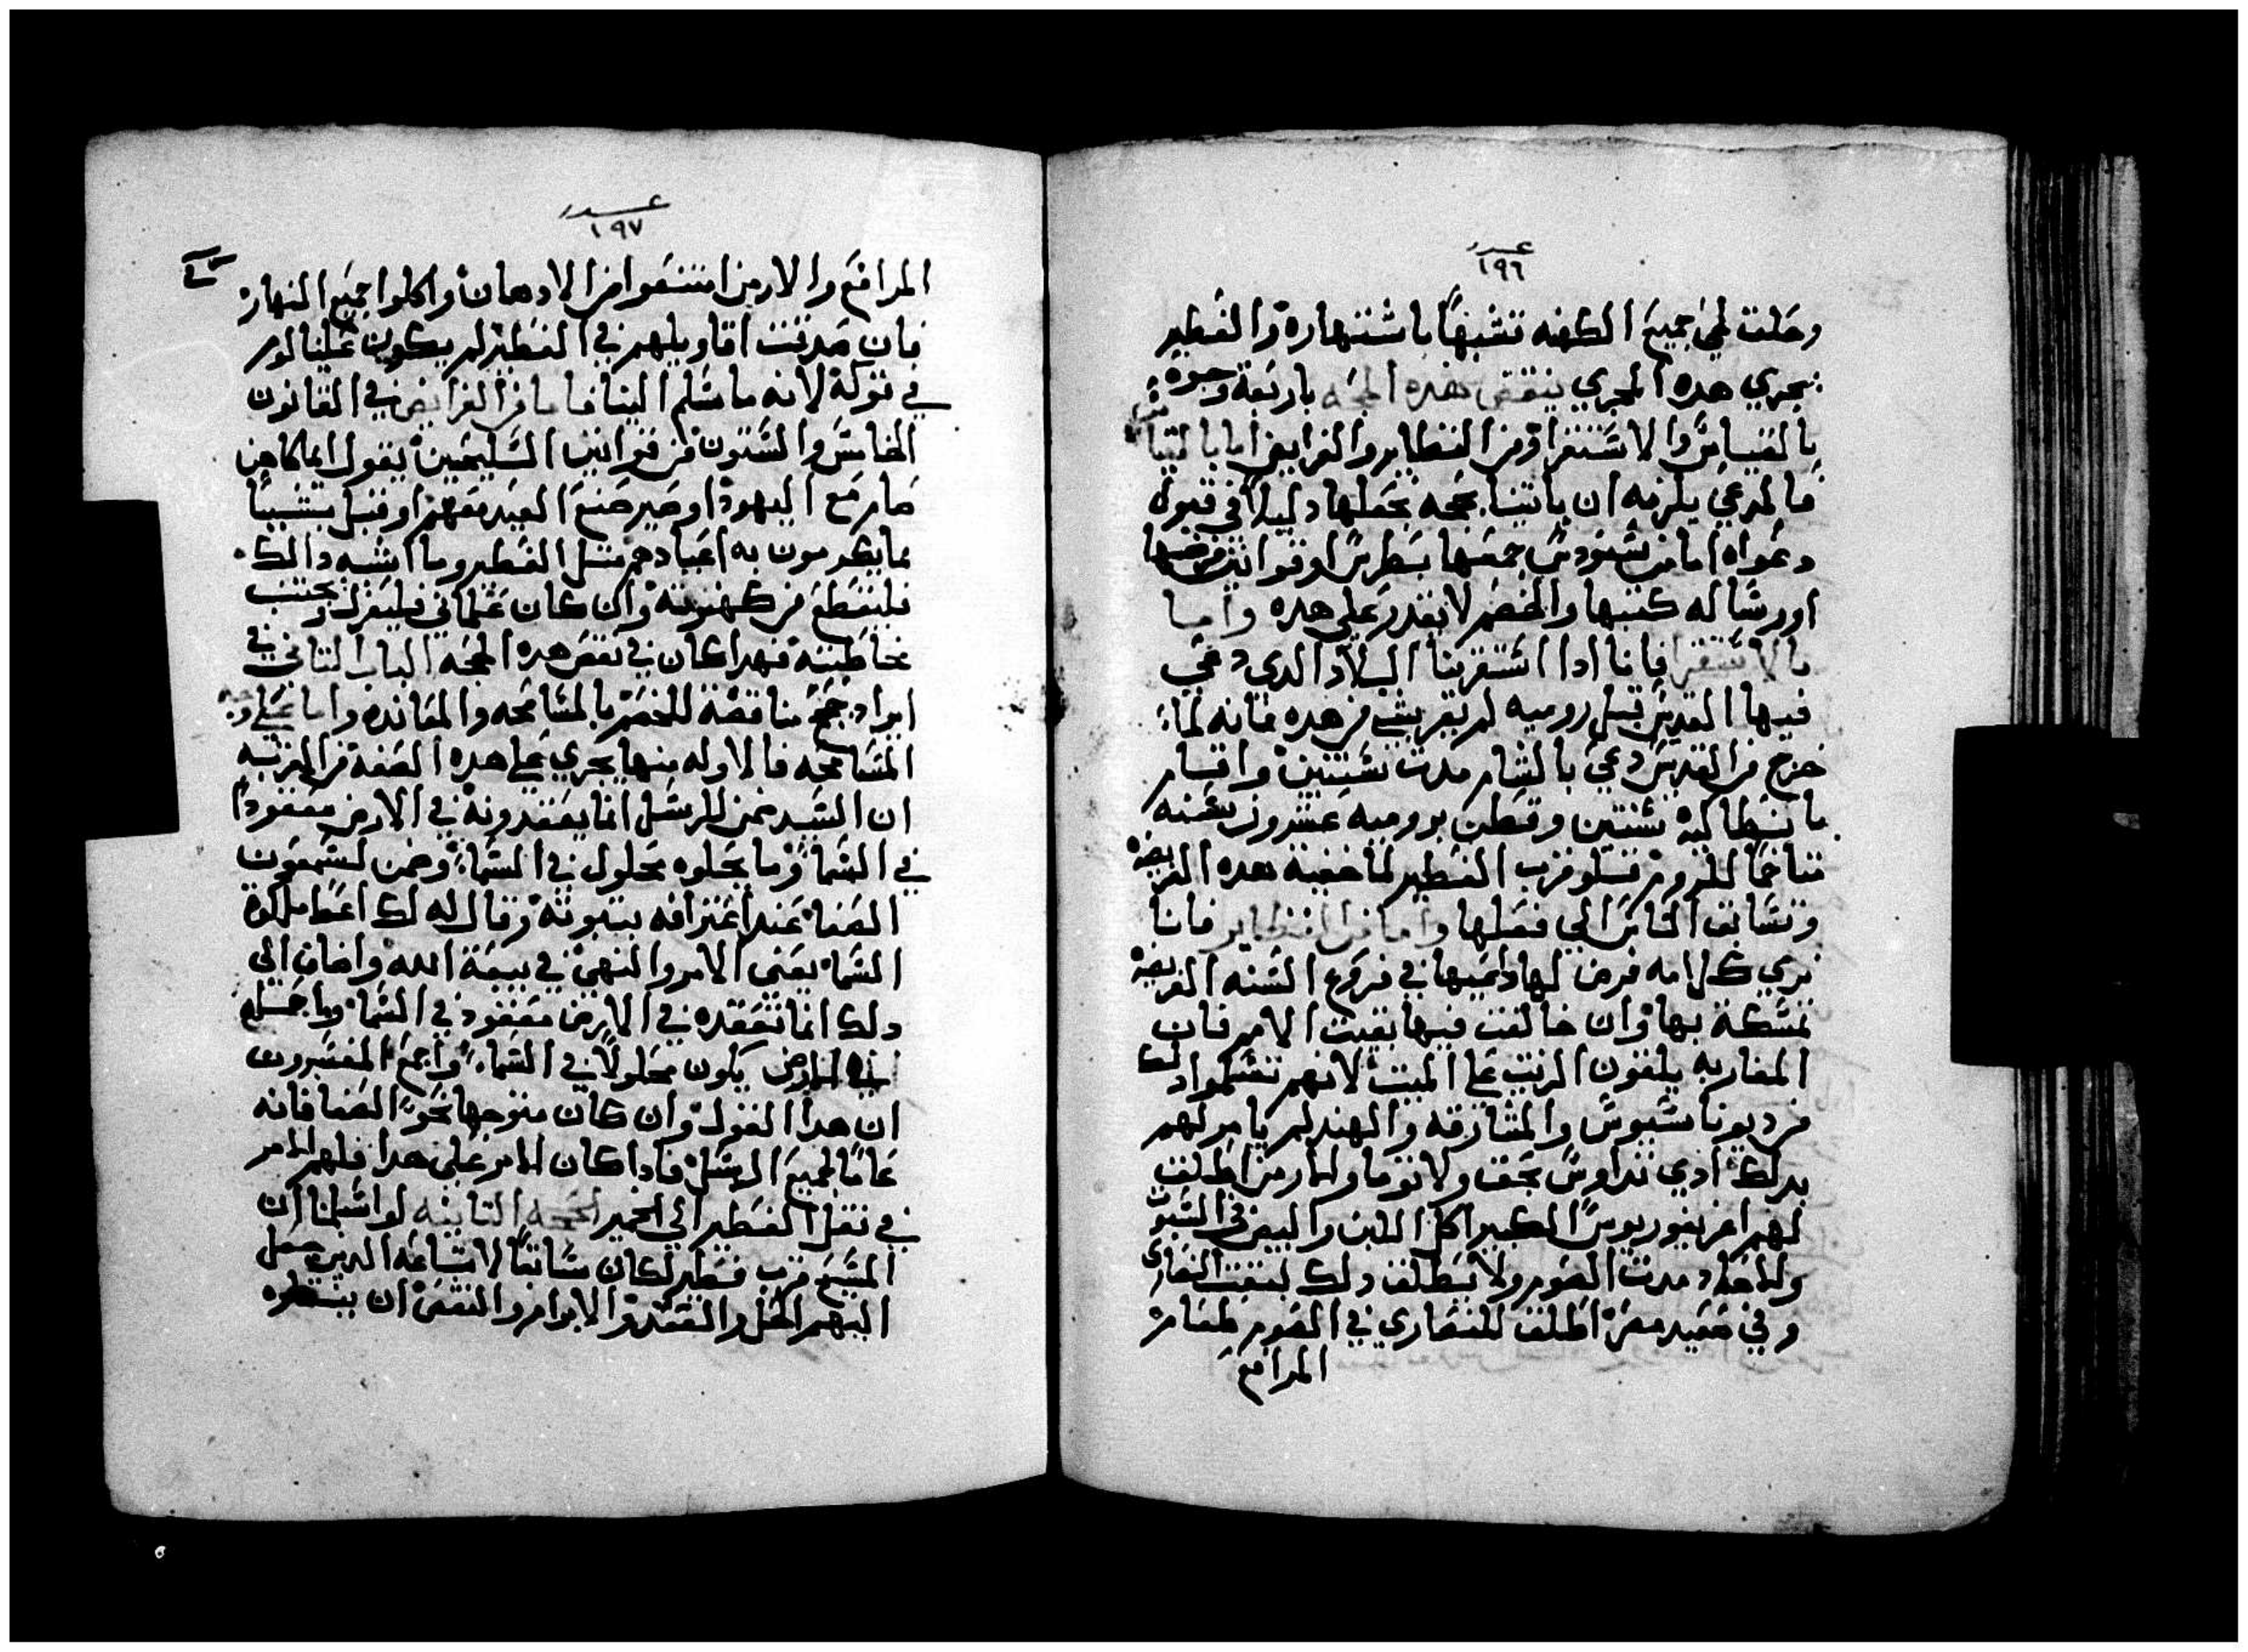 عدد
١٩٦
وحلت لجميع الكهنه تشبهاً باشتهاره والفطير
يجري هده المجري ينقض هده الحجه باربعة وجوه
بالقياس والاستقرا ومن النظاير والفرايض اما بالقياس
فالمدعي يلزمه ان ياتينا بحجه يجعلها دليلاً في قبول
دعواه اما من سنودس جمعها بطرس او قوانين فرضها
او رساله كتبها والخصم لا يقدر علي هده واما
بالاستقرا فاننا ادا استقرينا البلاد الدي دعي
فيها القديس قبل روميه لم نر شي من هده فانه لما
خرج من القدس دعي بالشام مدت سنتين واقام
بانطاكية سنتين وقطن بروميه عشرون سنه
متاخماً للروم فلو قرب الفطير لما خفية هده الفريضة
وتسابق الناس الي فعلها واما من النظاير فاننا
نري كل امه فرض لها داعيها في فروع السنه الفريضة
تمسكة بها وان خالفت فيها بقيت الامم فان
المغاربه يلقون الزيت علي الميت لانهم تسلموا دلك
من ديوناسيوس والمشارقه والهند لم يامرلهم
بدلك ادي تداوس بحق ولا توما والارمن اطلق
لهم اغريغوريوس الكبير اكل اللبن والبيض في السبوت
والاحاد مدت الصوم ولا يطلق دلك لبقيت النصارى
وفي صعيد مصر اطلق للنصاري في الصوم طعام
المرافع
عدد
١٩٧
المرافع والارمن امتنعوا من الادهان واكلوا جميع النهار
فان صدقت اقاويلهم في الفطير لم يكون علينا لوم
في تركه لانه ما سلم الينا فاما من الفرايض في القانون
الخامس والستون من قوانين السليحين يقول ايما كاهن
صام مع اليهود او صير صنع العيد معهم او قبل شيياً
مما يكرمون به اعيادهم مثل الفطير وما اشبه دالك
فلينقطع من كهنوته وان كان علماني فليفرز وتجتنب
مخاطبته فهدا كان في نقض هده الحجه الباب التاني في
ايراد حجج مناقضة للخصم بالمسامحه والمعانده واما علي وجه
المسامحه فالاوله منها يجري علي هده الصفة من المرتبه
ان السيد ضمن للرسل انما يعقدونه في الارض معقوداً
في السما وما يحلوه محلول في السما وضمن لسمعون
الصفا عند اعترافه ببنوته وقال له لك اعطا ملكوة
السما يعني الامر والنهي في بيعة الله واضاف الي
دلك انما تعقده في الارض معقود في السما وما تحله
في الارض يكون محلولاً في السما واجمع المفسرون
ان هدا القول وان كان متوجها نحو الصفا فانه
عاماً لجميع الرسل فادا كان الامر علي هدا فلهم الامر
في نقل الفطير الي الخمير الحجه التانيه لو اسلمنا ان
المسيح قرب فطير لكان سابقاً لاشاعه الدين حصل
اليهم الحل والعقد والابرام والنقض ان ينظره